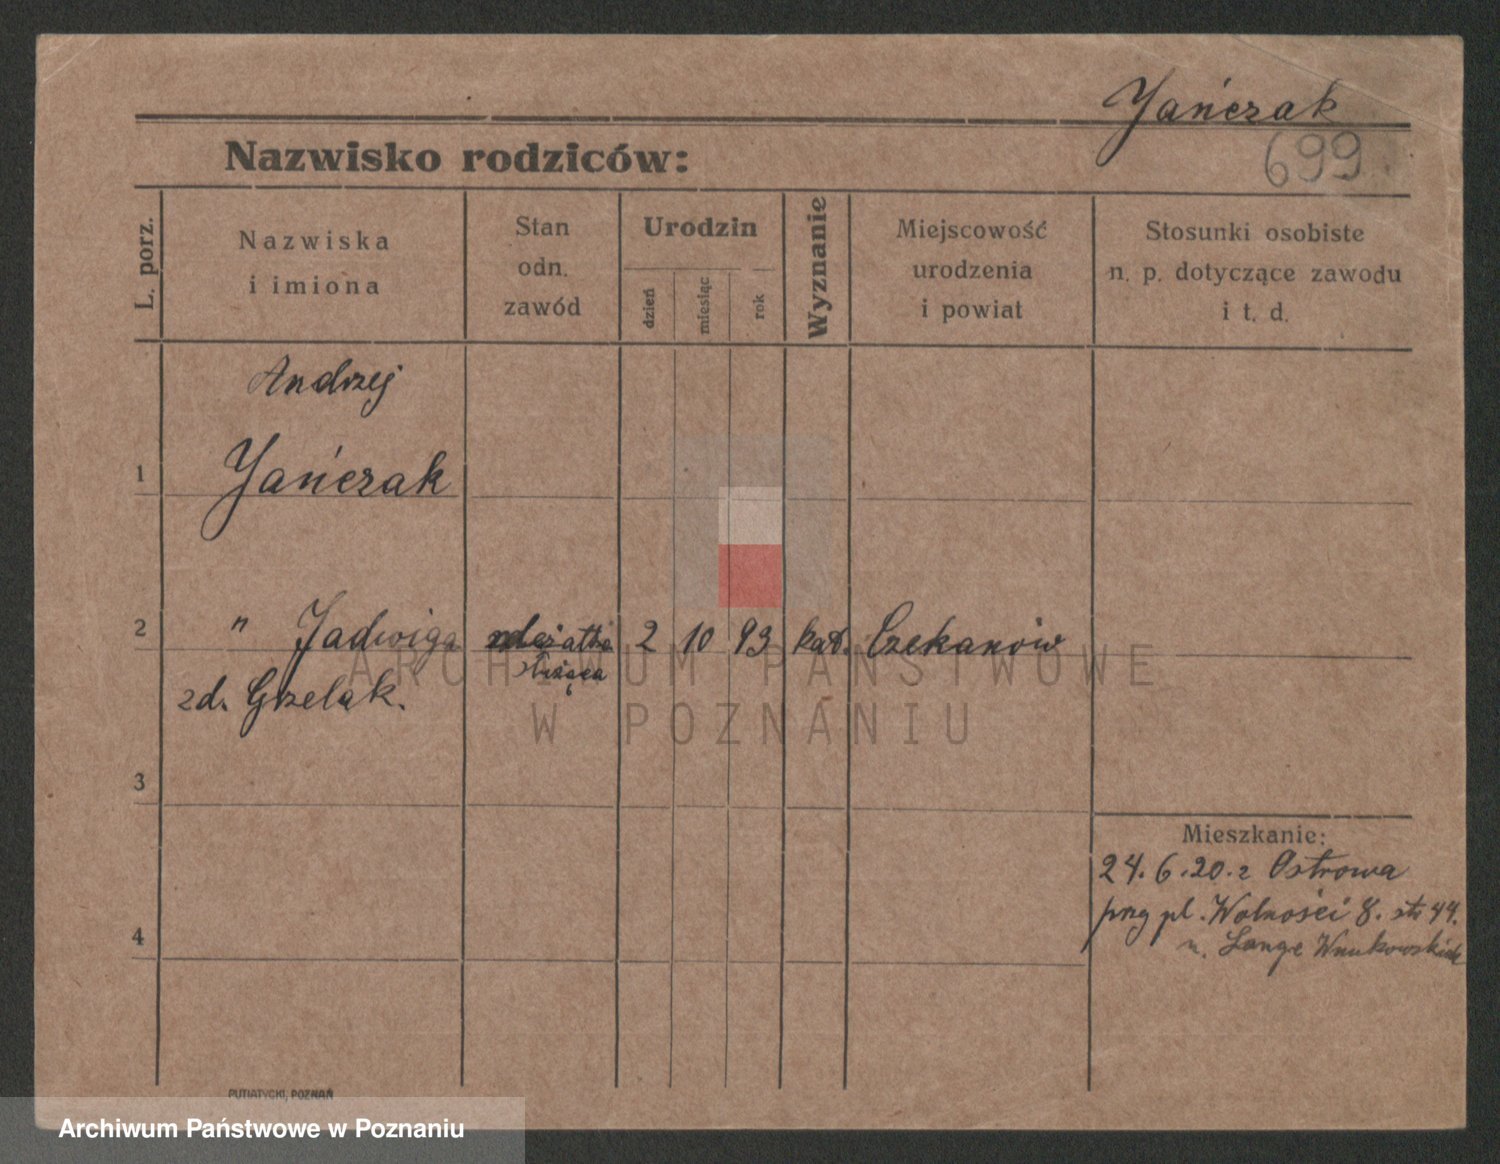 Jańczak
699
Nazwisko rodziców:
L. porz.
Nazwiska
i imiona
Stan
odn.
zawód
Urodzin
dzień
miesiąc
rok
Wyznanie
Miejscowość
urodzenia
i powiat
Stosunki osobiste
n. p. dotyczące zawodu
i t. d.
Andrzej
1 Jańczak
2 " Jadwiga mężatka 2 10 93 kat. Czekanów
służąca
zd. Grzelak.
3
Mieszkanie:
24.6.20. z Ostrowa
przy pl. Wolności 8. 44.
4
u. Lange Wnukowskich
PUTIATYCKI, POZNAŃ
ARCHIWUM PAŃSTWOWE
W POZNANIU
Archiwum Państwowe w Poznaniu